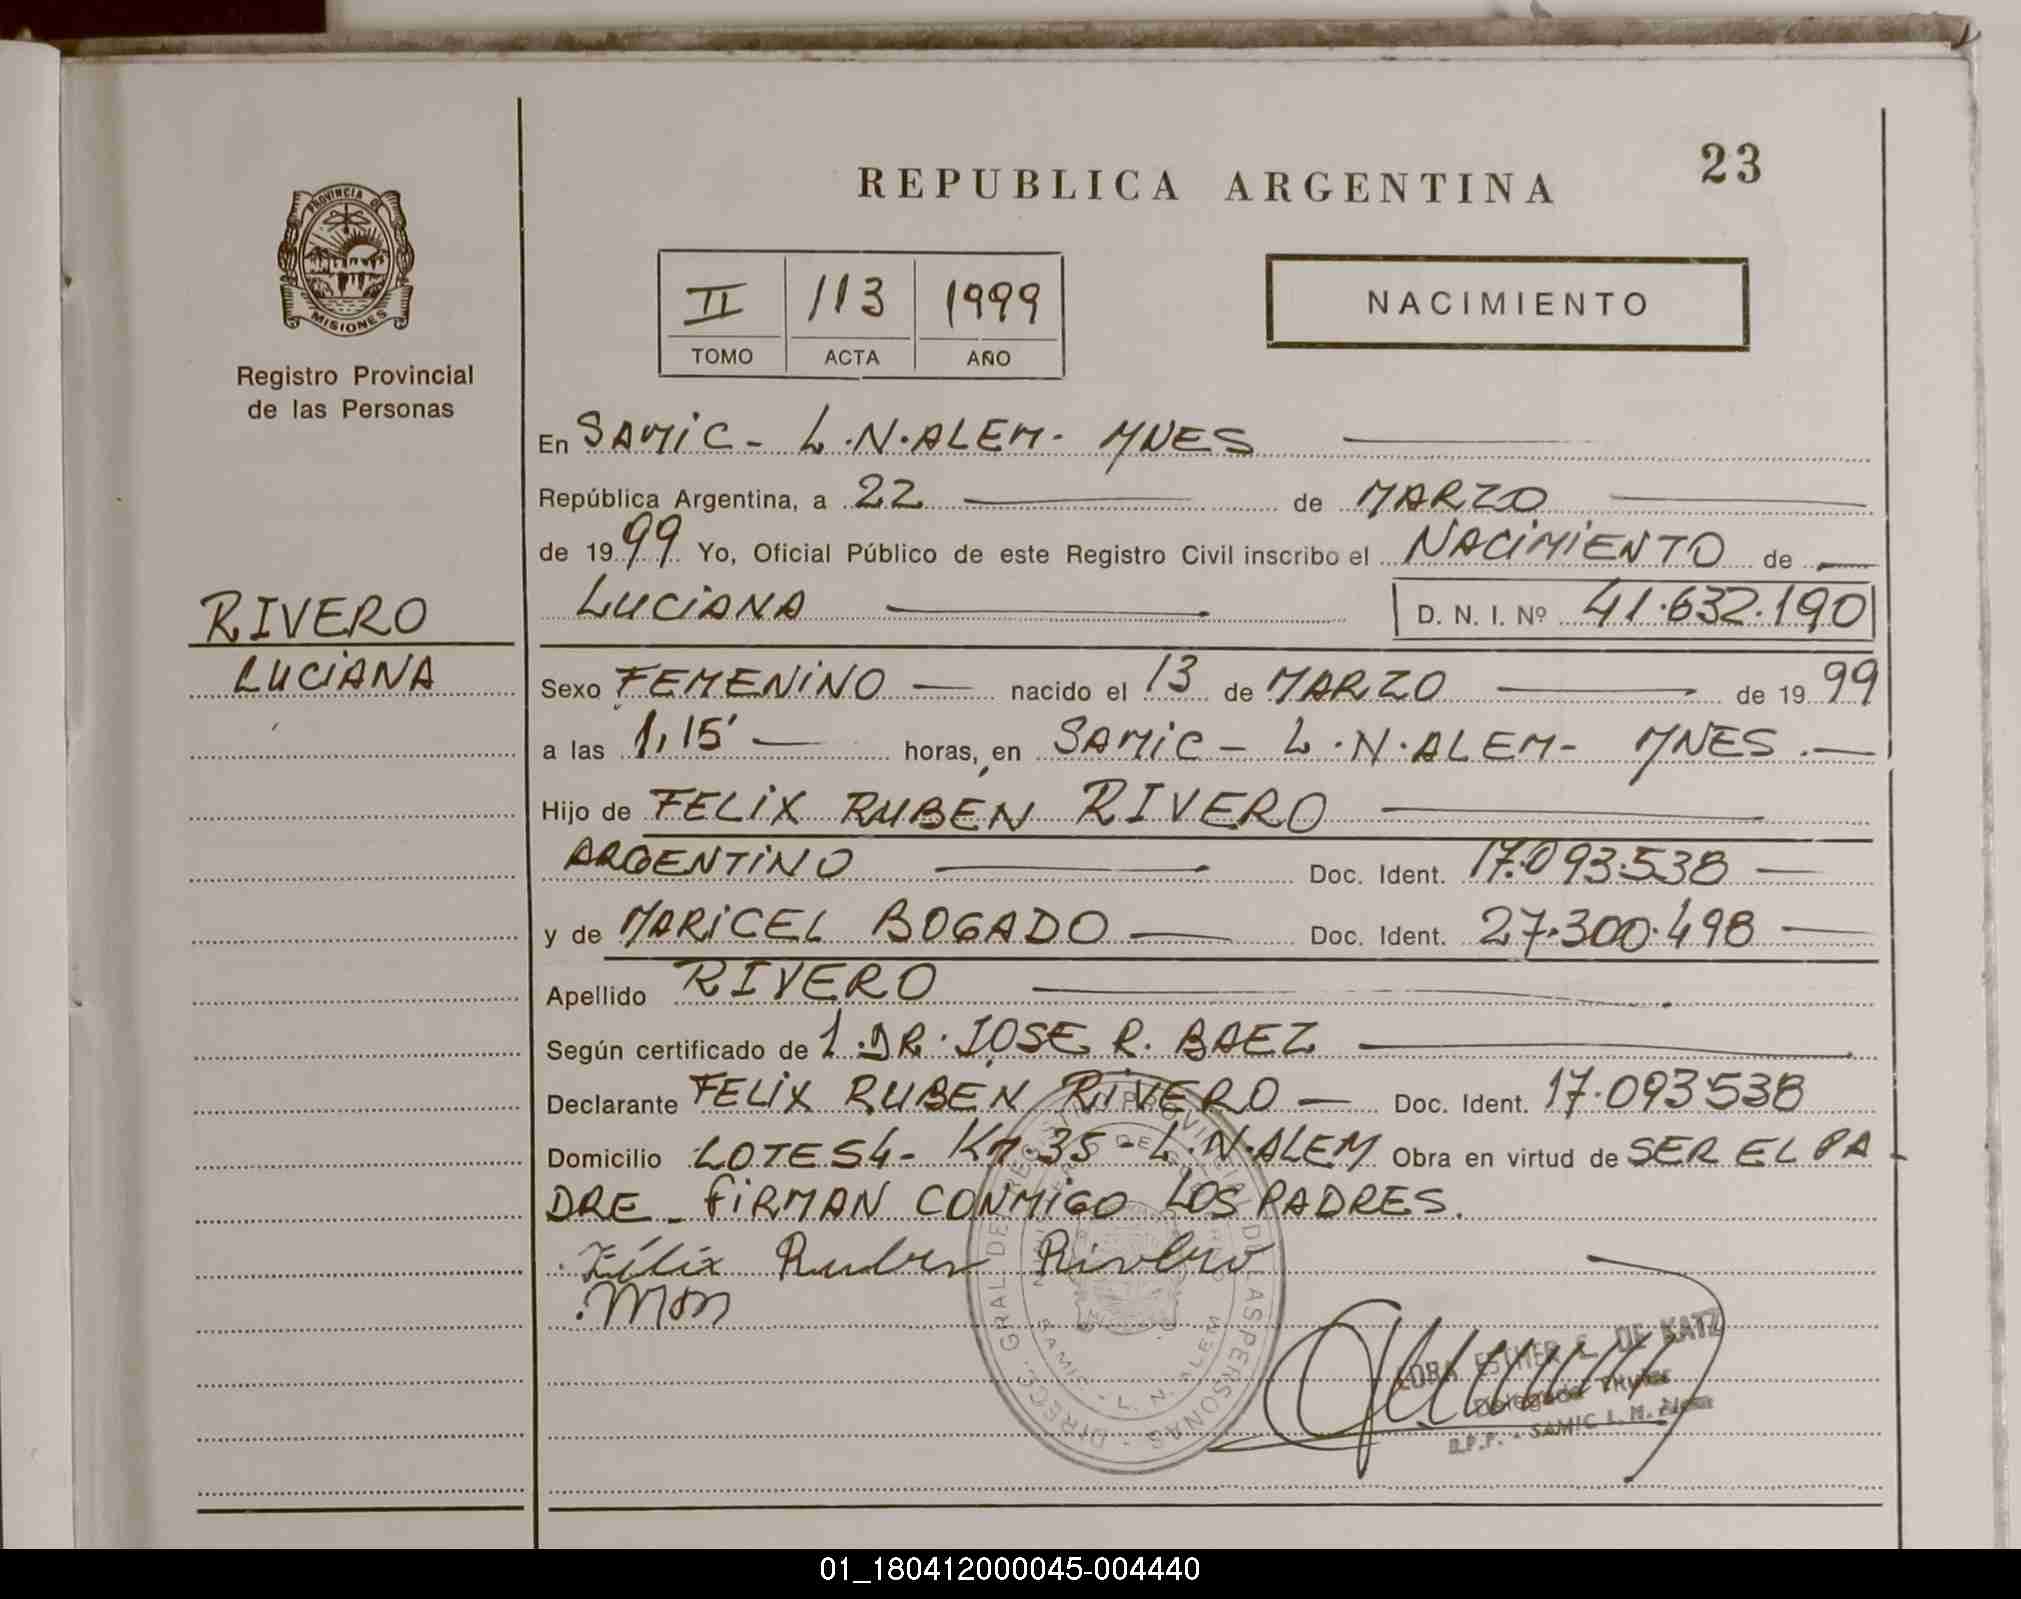 23
REPUBLICA ARGENTINA
PROVINCIA DE
MISIONES
Registro Provincial
de las Personas
II 113 1999
TOMO ACTA AÑO
NACIMIENTO
En SAMIC - L.N.ALEM - MNES
República Argentina, a 22 de MARZO
de 1999 Yo, Oficial Público de este Registro Civil inscribo el NACIMIENTO de
LUCIANA D. N. I. Nº 41.632.190
RIVERO
LUCIANA
Sexo FEMENINO nacido el 13 de MARZO de 1999
a las 1,15' horas, en SAMIC - L.N.ALEM - MNES.
Hijo de FELIX RUBEN RIVERO
ARGENTINO Doc. Ident. 17.093.538
y de MARICEL BOGADO Doc. Ident. 27.300.498
Apellido RIVERO
Según certificado de 1.DR. JOSE R. BAEZ
Declarante FELIX RUBEN RIVERO Doc. Ident. 17.093538
Domicilio LOTE54 - Km 35 - L.N.ALEM Obra en virtud de SER EL PA
DRE - FIRMAN CONMIGO LOS PADRES.
Félix Ruben Rivero
ESTHER E. DE KATZ
Delegada Titular
R.P.P. - SAMIC L. N. Alem
DIREC. GRAL DE REGISTRO PROVINCIAL DE LAS PERSONAS
SAMIC - L. N. ALEM
01_180412000045-004440